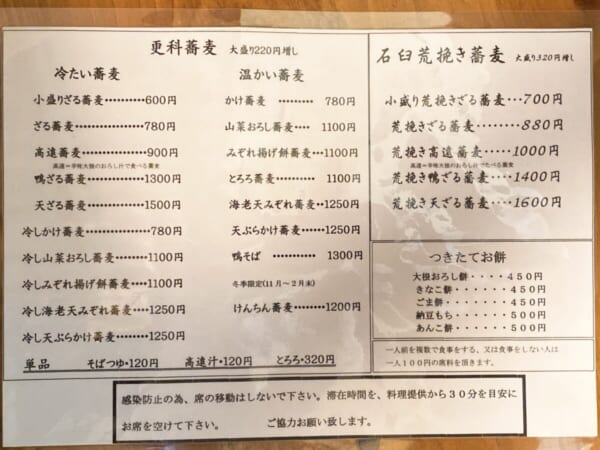 更科蕎麦 大盛り220円増し
冷たい蕎麦
小盛りざる蕎麦・・・・・・・・・・600円
ざる蕎麦・・・・・・・・・・・・・・780円
高遠蕎麦・・・・・・・・・・・・・900円
高遠＝辛味大根のおろし汁で食べる蕎麦
鴨ざる蕎麦・・・・・・・・・・・1300円
天ざる蕎麦・・・・・・・・・・・1500円
冷しかけ蕎麦・・・・・・・・・・780円
冷し山菜おろし蕎麦・・・・1100円
冷しみぞれ揚げ餅蕎麦・・1100円
冷し海老天みぞれ蕎麦・・1250円
冷し天ぷらかけ蕎麦・・・・1250円
温かい蕎麦
かけ蕎麦 ・・・・・・・・・ 780円
山菜おろし蕎麦・・・・ 1100円
みぞれ揚げ餅蕎麦・・・ 1100円
とろろ蕎麦 ・・・・・・・ 1100円
海老天みぞれ蕎麦・・1250円
天ぷらかけ蕎麦・・・・・・1250円
鴨そば ・・・・・・ 1300円
冬季限定(11月～2月末)
けんちん蕎麦・・・・・・・・1200円
単品 そばつゆ・120円 高遠汁・120円 とろろ・320円
石臼荒挽き蕎麦 大盛り320円増し
小盛り荒挽きざる蕎麦・・・700円
荒挽きざる蕎麦・・・・・・・・880円
荒挽き高遠蕎麦・・・・・1000円
高遠＝辛味大根のおろし汁でたべる蕎麦
荒挽き鴨ざる蕎麦・・・・1400円
荒挽き天ざる蕎麦・・・・1600円
つきたてお餅
大根おろし餅・・・・・４５０円
きなこ餅・・・・・・・４５０円
ごま餅・・・・・・・・４５０円
納豆もち・・・・・・・５００円
あんこ餅・・・・・・・５００円
一人前を複数で食事をする、又は食事をしない人は
一人１００円の席料を頂きます。
感染防止の為、席の移動はしないで下さい。滞在時間を、料理提供から３０分を目安に
お席を空けて下さい。 ご協力お願い致します。